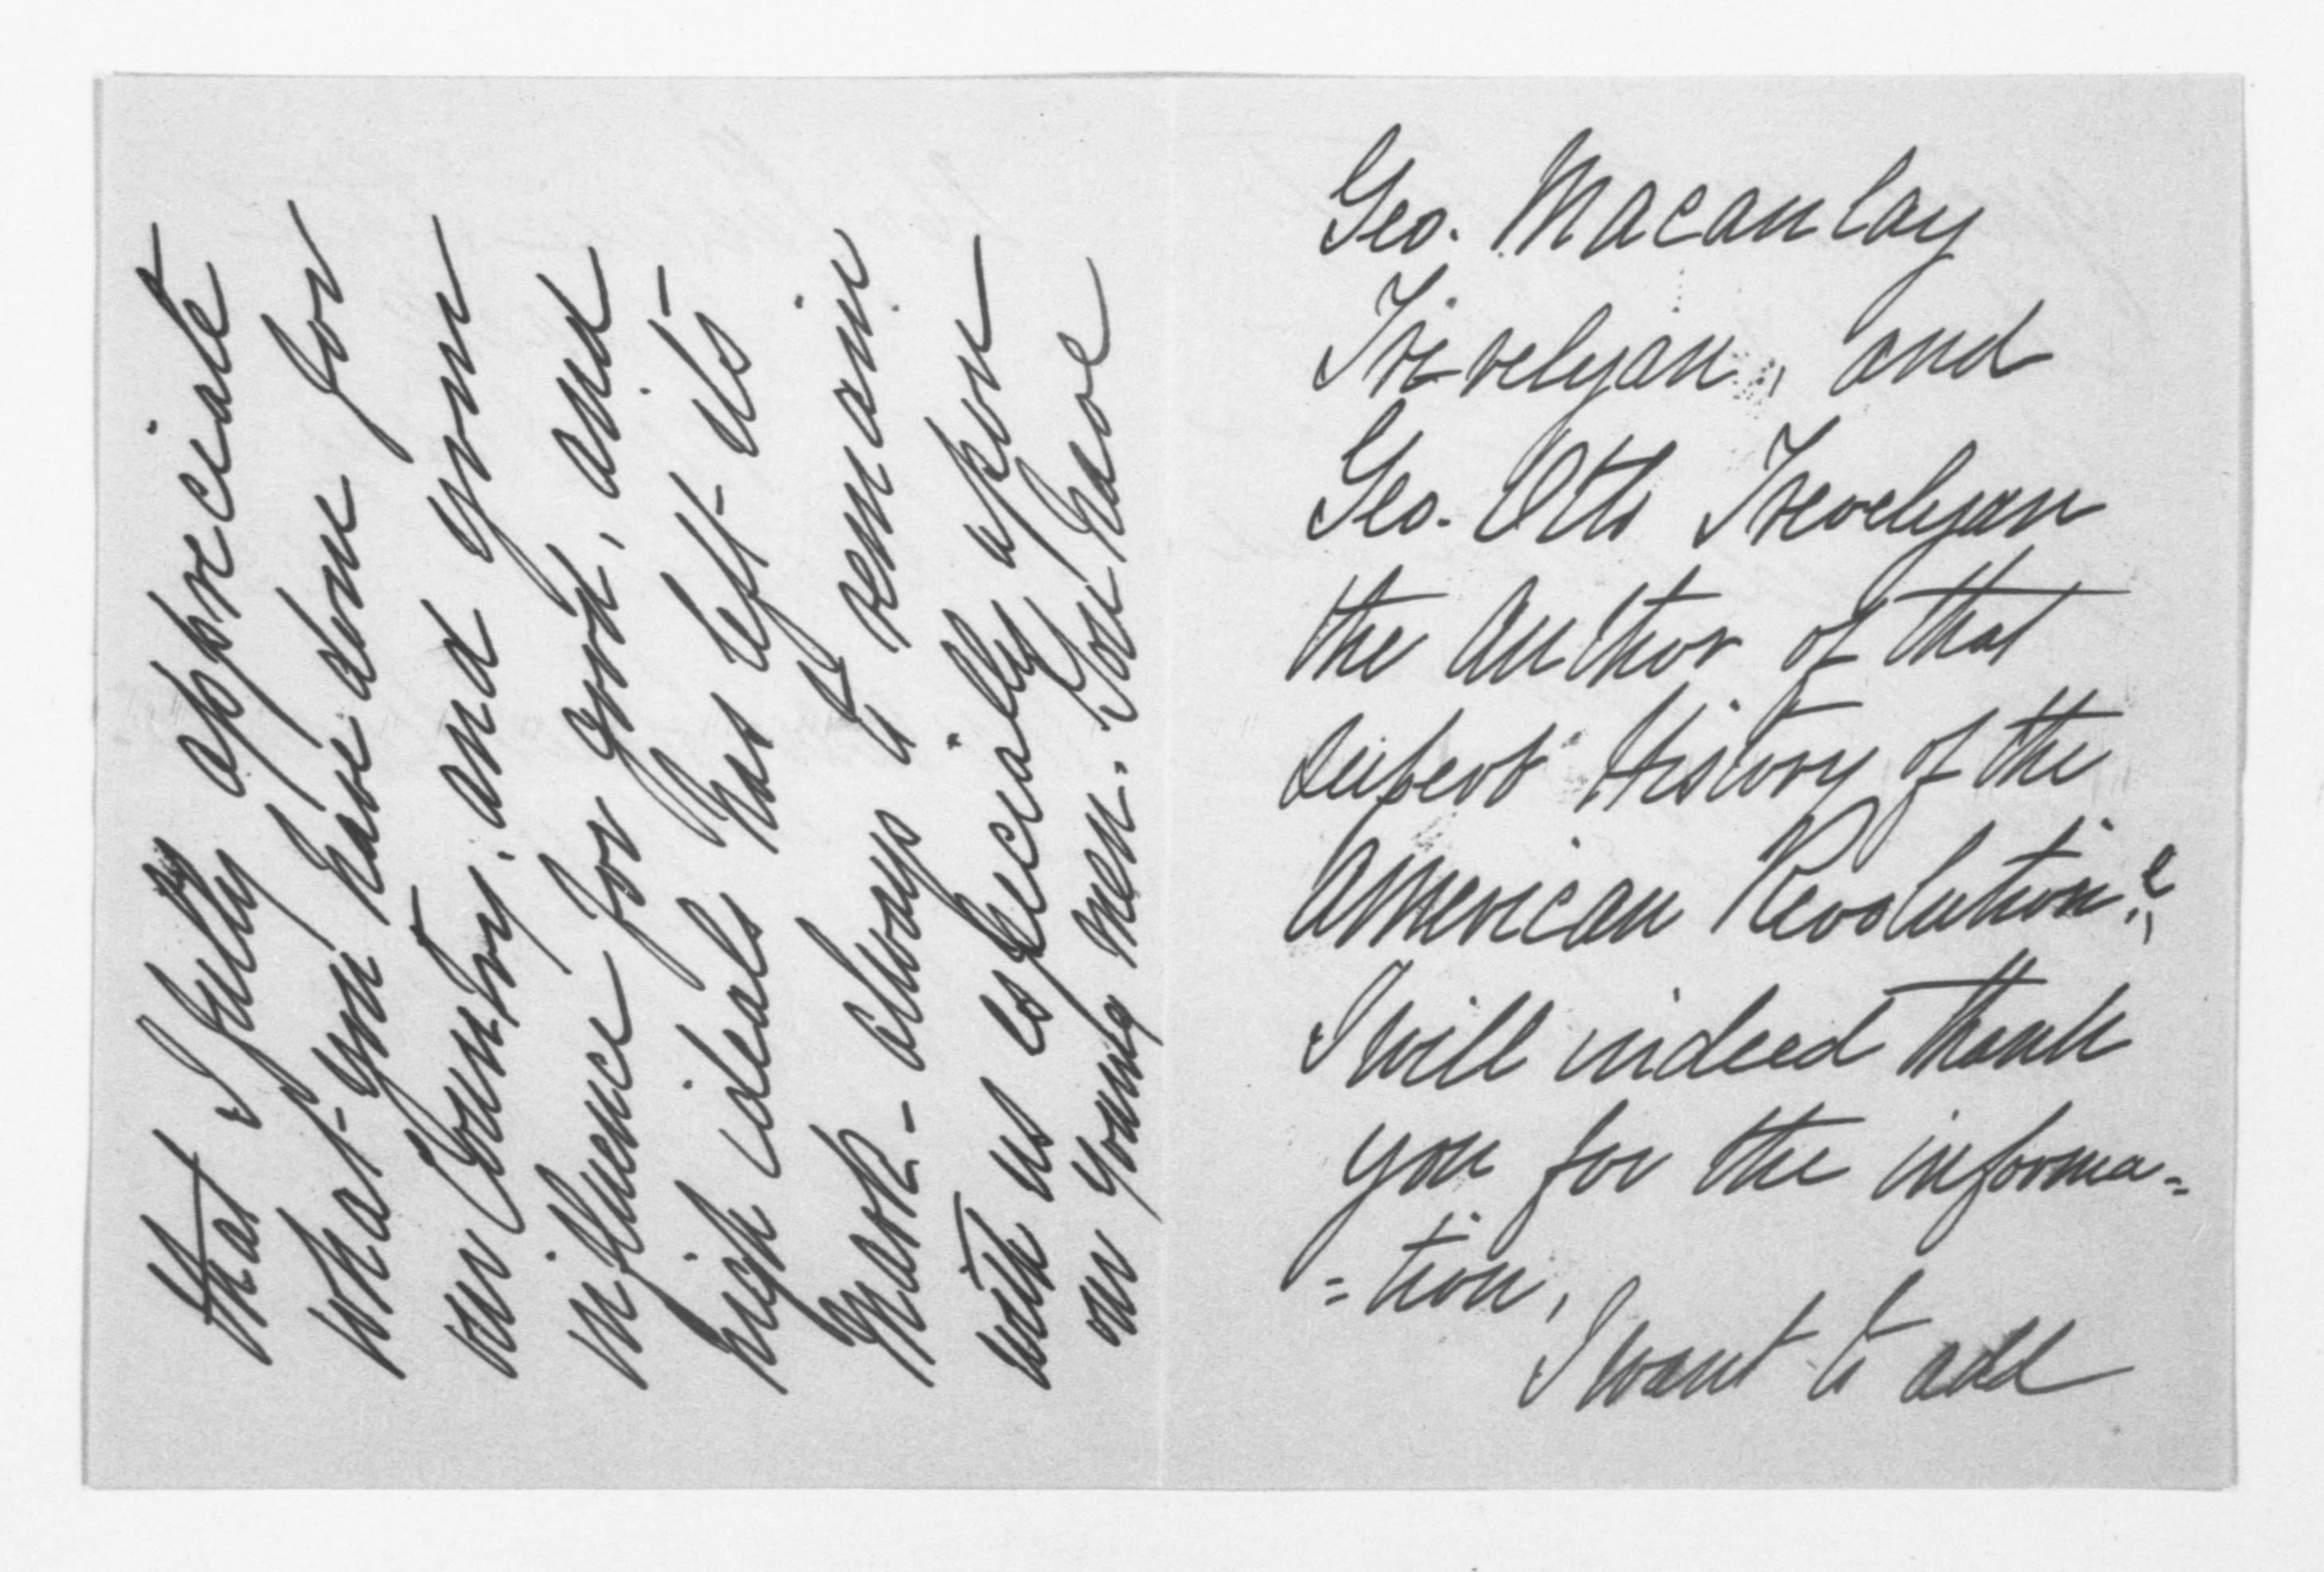 Geo. Macaulay
Trevelyan, and
Geo. Otto Trevelyan
the author of that
superb History of the
American Revolution?"
I will indeed thank
you for the informa=
=tion,
I want to add
that I fully appreciate
what you have done for
our Country, and your
influence for good, and
high ideals has left its
mark - always to remain
with us especially upon
our young men. You have